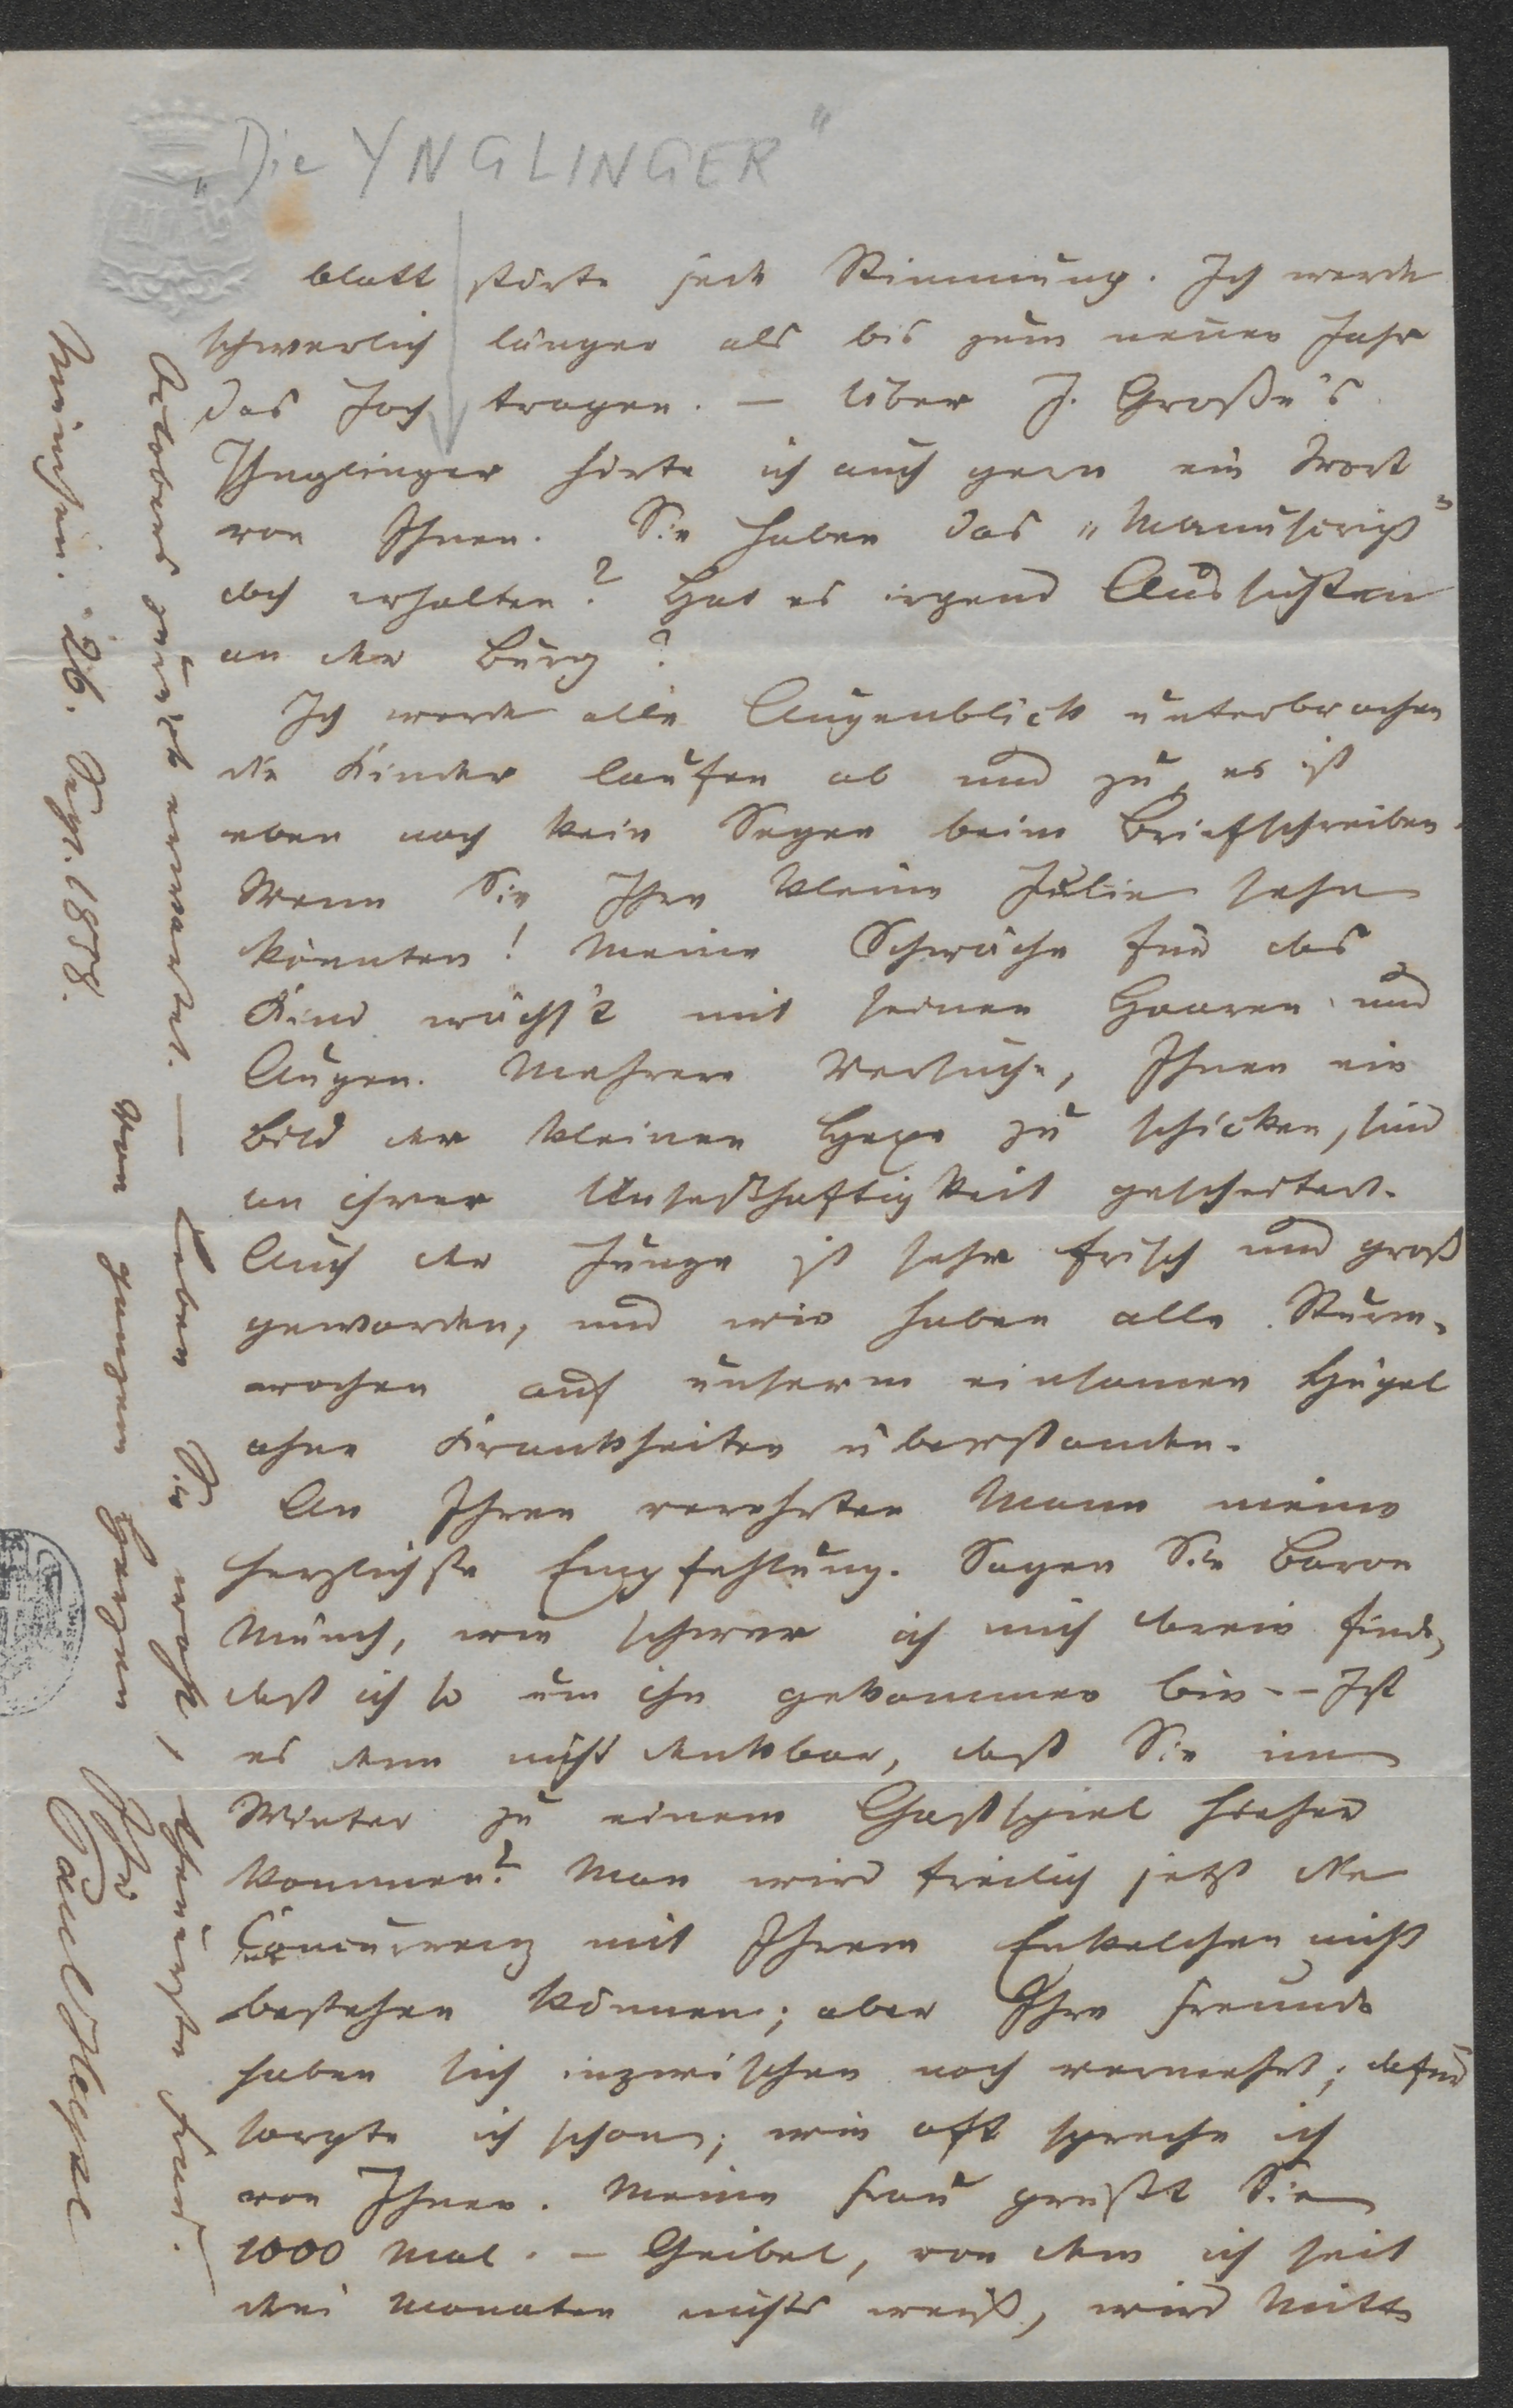 „Die YNGLINGER"
blatt störte jede Stimmung. Ich werde
schwerlich länger als bis zum neuen Jahr
das Joch tragen. — Über J. Große's
Ynglinger hörte ich auch gern ein Wort
von Ihnen. Sie haben das „Manuscript"
doch erhalten? Hat es irgend Aussichten
an der Burg?
Ich werde alle Augenblick unterbrochen
die Kinder laufen ab und zu, es ist
eben noch kein Segen beim Briefschreiben.
Wenn Sie Ihre kleine Julie sehn
könnten! Meine Schwäche für das
Kind wächs't mit seinen Haaren und
Augen. Mehrere Versuche, Ihnen ein
Bild der kleinen Hexe zu schicken, sind
an ihrer Unseßhaftigkeit gescheitert.
Auch der Junge ist sehr frisch und groß
geworden, und wir haben alle Sturm-
wochen auf unserm einsamen Hügel
ohne Krankheiten überstanden.
An Ihren verehrten Mann meine
herzlichste Empfehlung. Sagen Sie Baron
Münch, wie schwer ich mich drein finde,
daß ich so um ihn gekommen bin -- Ist
es denn nicht denkbar, daß Sie im
Winter zu einem Gastspiel hieher
kommen? Man wird freilich jetzt die
Concurrenz mit Ihrem Enkelchen nicht
bestehen können; aber Ihre Freunde
haben sich inzwischen noch vermehrt; dafür
sorgte ich schon; wie oft spreche ich
von Ihnen. Meine Frau grüßt Sie
1000 Mal. — Geibel, von dem ich seit
drei Monaten nichts weiß, wird Mitte
Octobers zurück erwartet. — Leben Sie wohl, theuerste Freund.
Von ganzem Herzen Ihr
München. 26. Sept. 1858. Paul Heyse